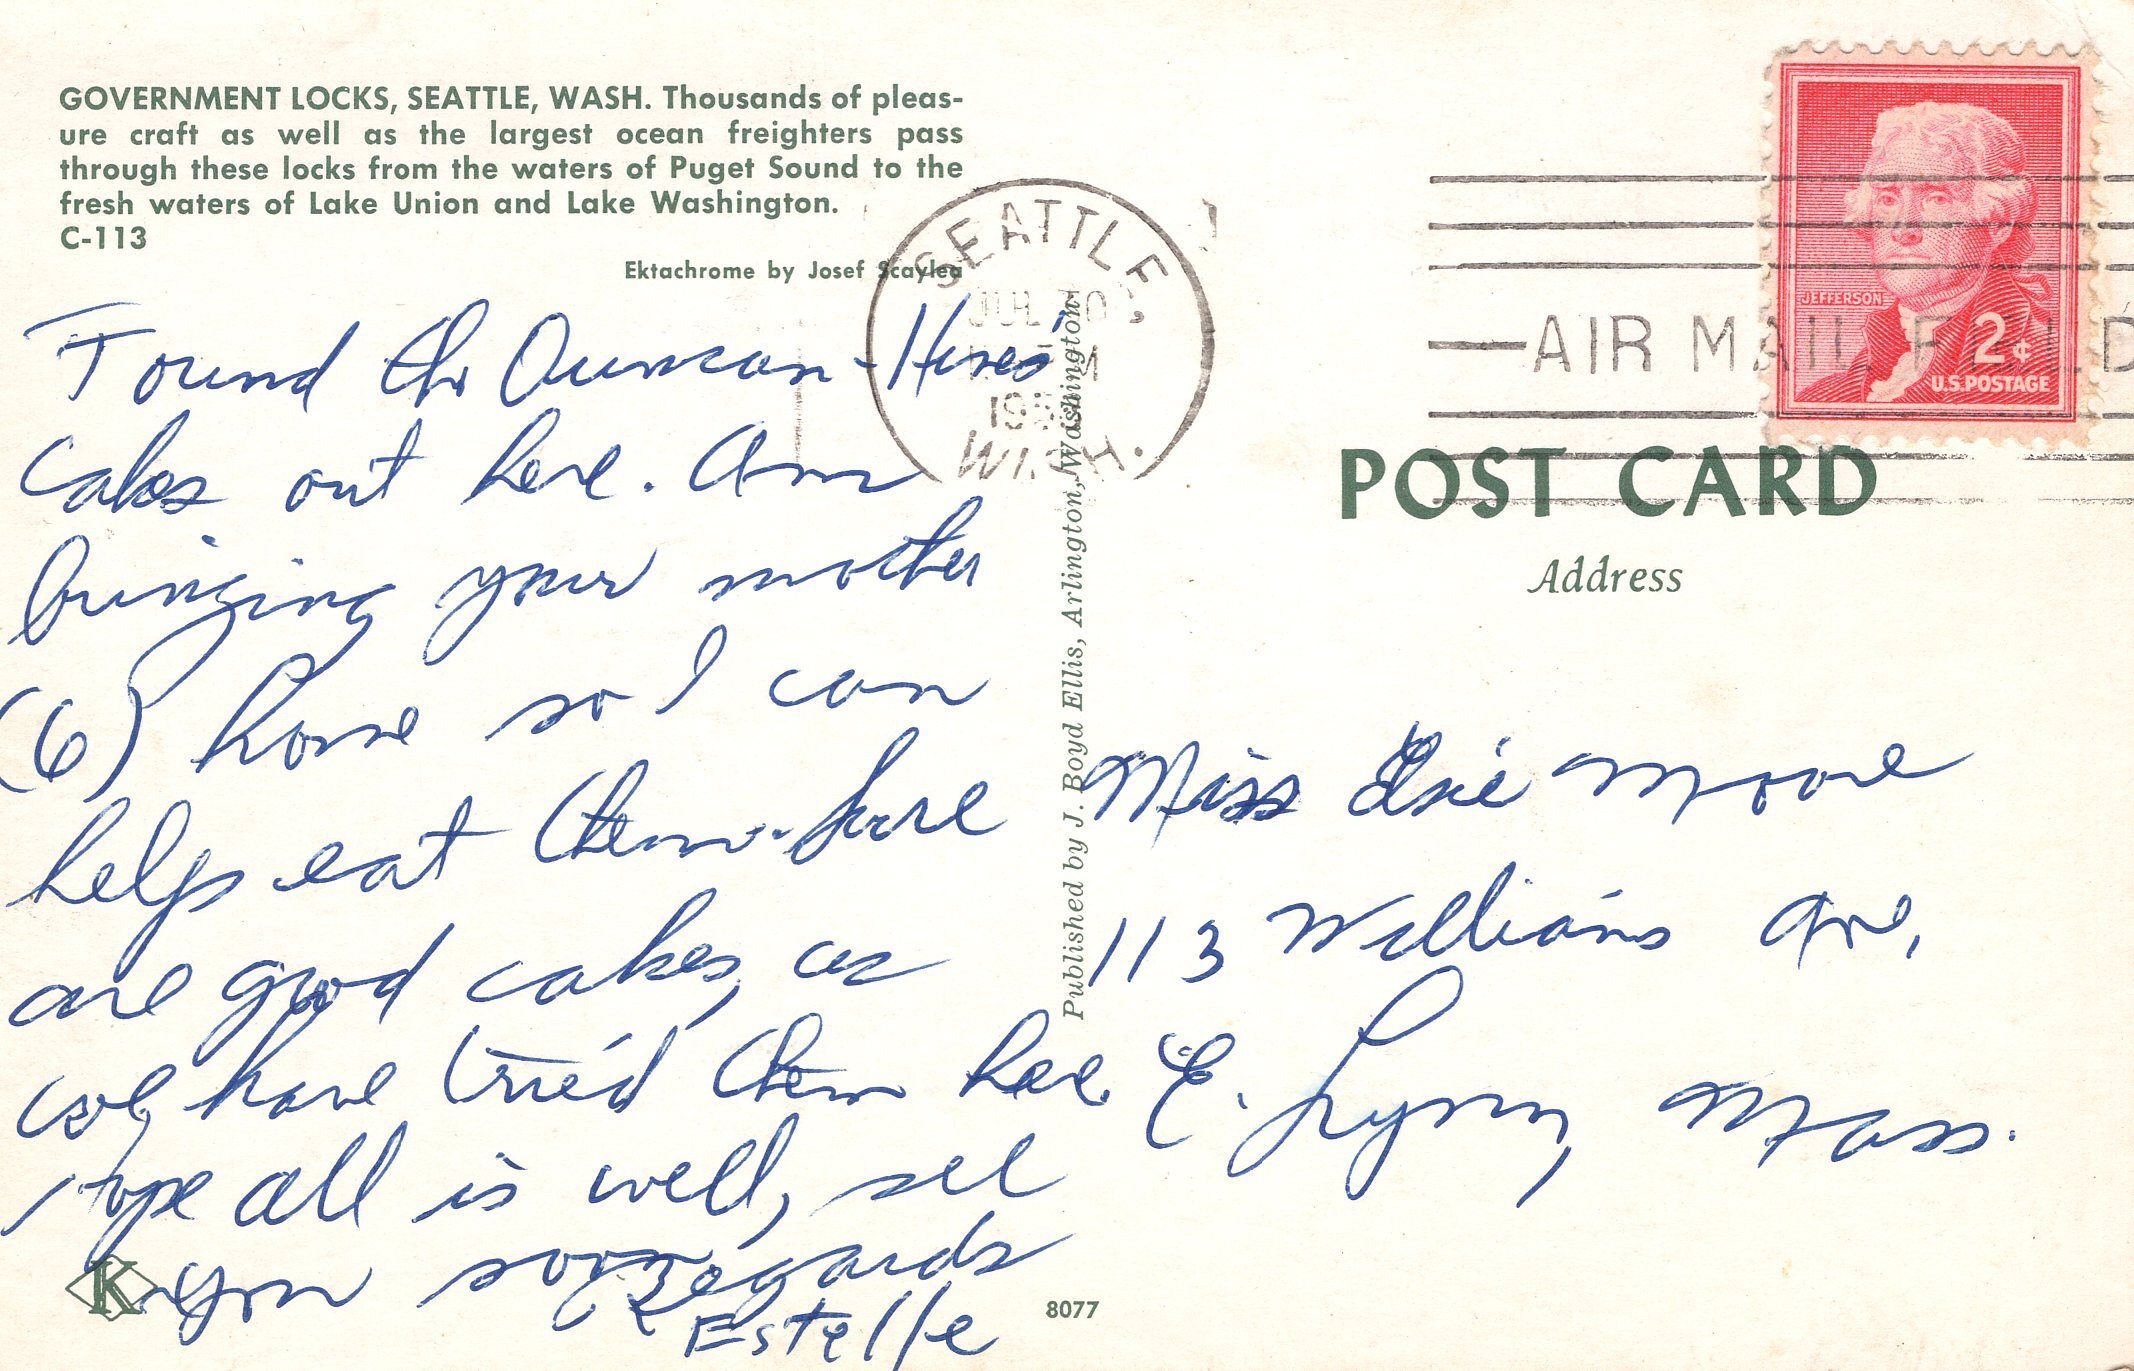 GOVERNMENT LOCKS, SEATTLE, WASH. Thousands of pleas-
ure craft as well as the largest ocean freighters pass
through these locks from the waters of Puget Sound to the
fresh waters of Lake Union and Lake Washington.
C-113
Ektachrome by Josef Scaylea
Found the Duncan-Hines
cakes out here. Am
bringing your mother
(6) home so I can
help eat them. are
are good cakes, as
we have tried them here.
Hope all is well, see
you soon
Regards
Estelle
K
8077
Published by J. Boyd Ellis, Arlington, Washington
SEATTLE,
JUL 30
M
195
WASH.
AIR MAIL FIELD
JEFFERSON
2¢
U.S. POSTAGE
POST CARD
Address
Miss Moore
113 Williams Ave,
E. Lynn, Mass.